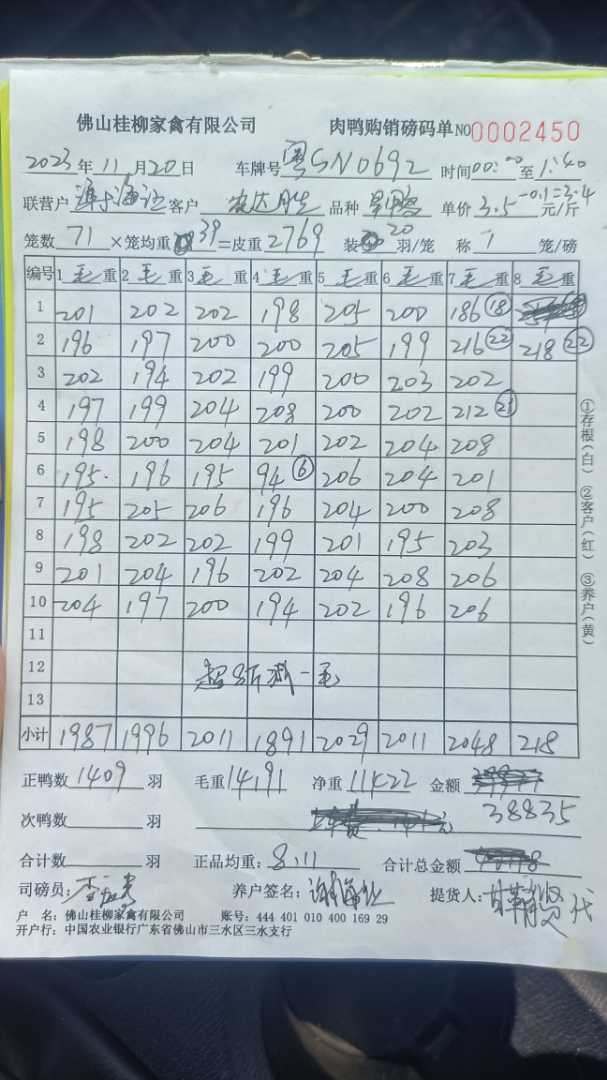 佛山桂柳家禽有限公司 肉鸭购销磅码单 NO0002450
2023年11月20日 车牌号粤SN0692 时间00:00至1:40
联营户 客户 农达 品种 旱鸭 单价3.5-0.1=3.4元/斤
笼数71×笼均重39=皮重2769 装20羽/笼 称1笼/磅
编号 1毛重 2毛重 3毛重 4毛重 5毛重 6毛重 7毛重 8毛重
1 201 202 202 198 205 200 186⑱
2 196 197 200 200 205 199 216㉒ 218㉒
3 202 194 202 199 200 203 202
4 197 199 204 208 200 202 212㉑
5 198 200 204 201 202 204 208
6 195. 196 195 94⑥ 206 204 201
7 195 205 206 196 204 200 208
8 198 202 202 199 201 195 203
9 201 204 196 202 204 208 206
10 204 197 200 194 202 196 206
11
12 超8斤减一毛
13
小计 1987 1996 2011 1891 2029 2011 2048 218
正鸭数1409羽 毛重14191 净重11422 金额
38835
次鸭数 羽
合计数 羽 正品均重:8.11 合计总金额
司磅员: 养户签名: 提货人: 代
户 名: 佛山桂柳家禽有限公司 账号: 444 401 010 400 169 29
开户行: 中国农业银行广东省佛山市三水区三水支行
①存根(白) ②客户(红) ③养户(黄)